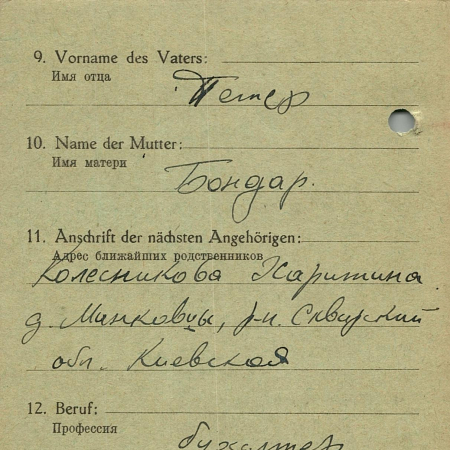 9. Vorname des Vaters:
Имя отца
Петер
10. Name der Mutter:
Имя матери
Бондар.
11. Anschrift der nächsten Angehörigen:
Адрес ближайших родственников
Колесникова Харитина
д. Минковцы, р-н. Сквирский
обл. Киевская
12. Beruf:
Профессия
бухалтер